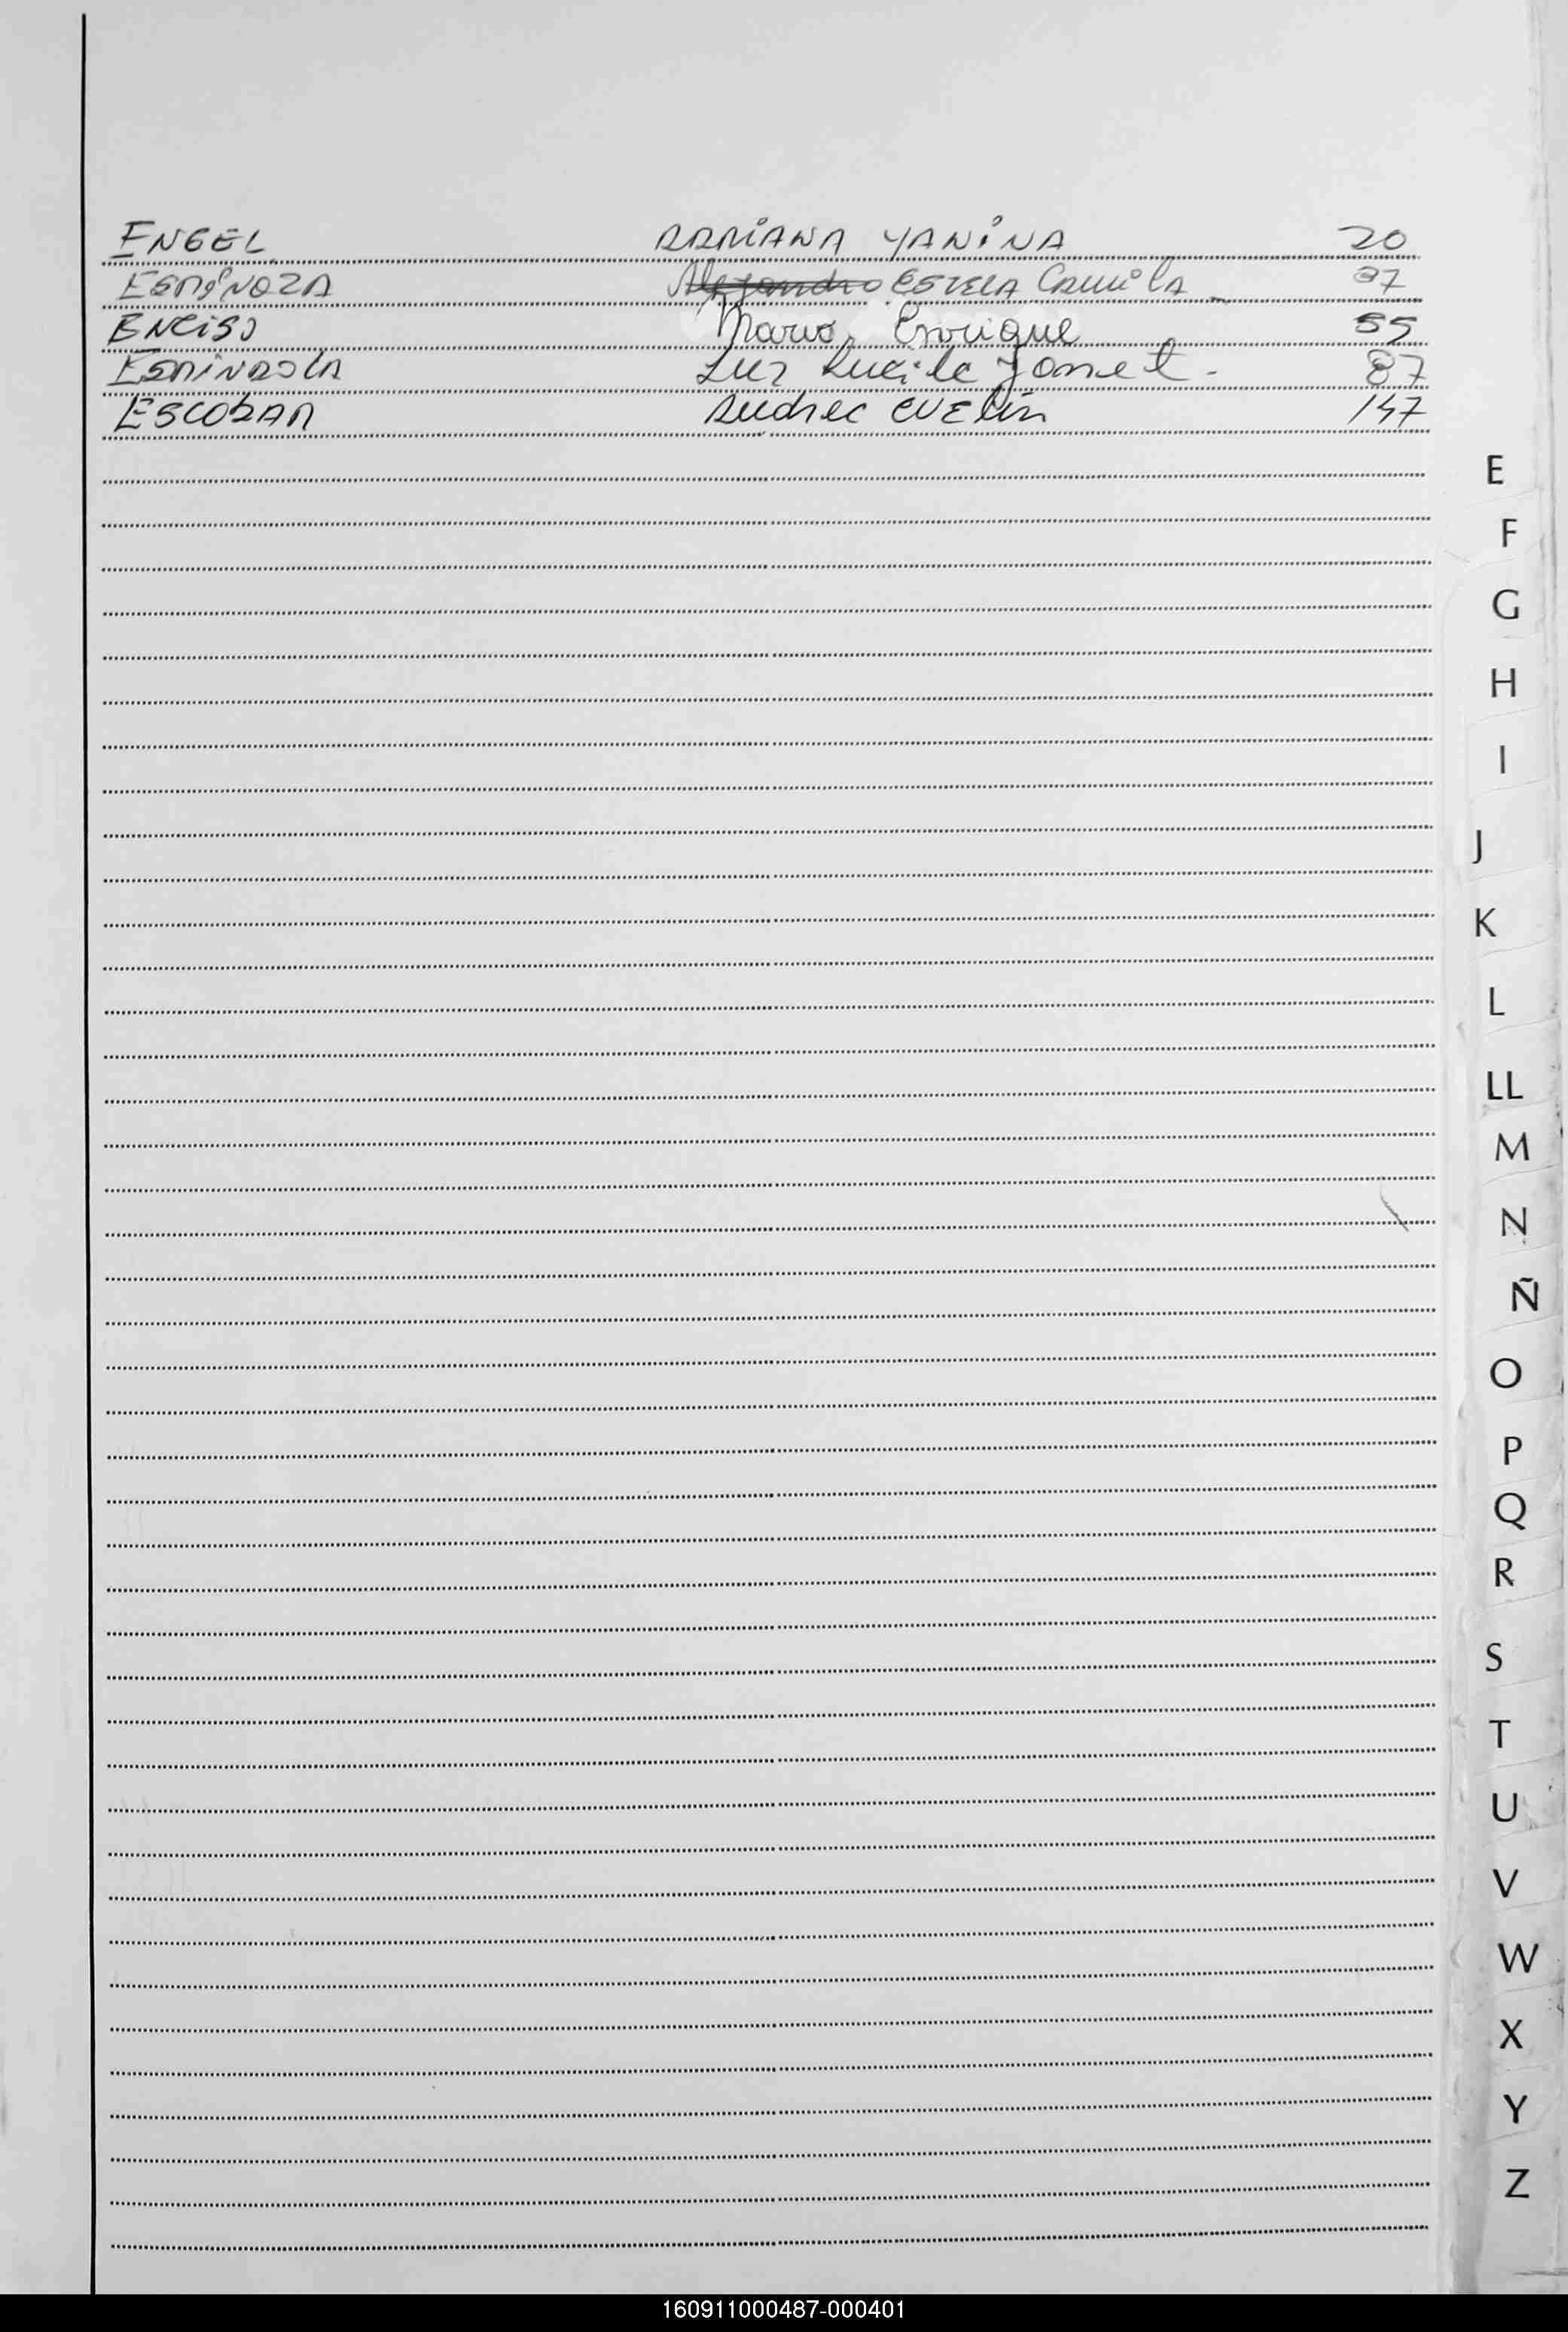 ENGEL ADRIANA YANINA 20
ESPINOZA Alejandro ESTELA Camila 37
ENCISO Mario Enrique 55
ESPINDOLA Luz Lucila Jamet 87
ESCOBAR Andrea EVElin 147
E
F
G
H
I
J
K
L
LL
M
N
Ñ
O
P
Q
R
S
T
U
V
W
X
Y
Z
160911000487-000401